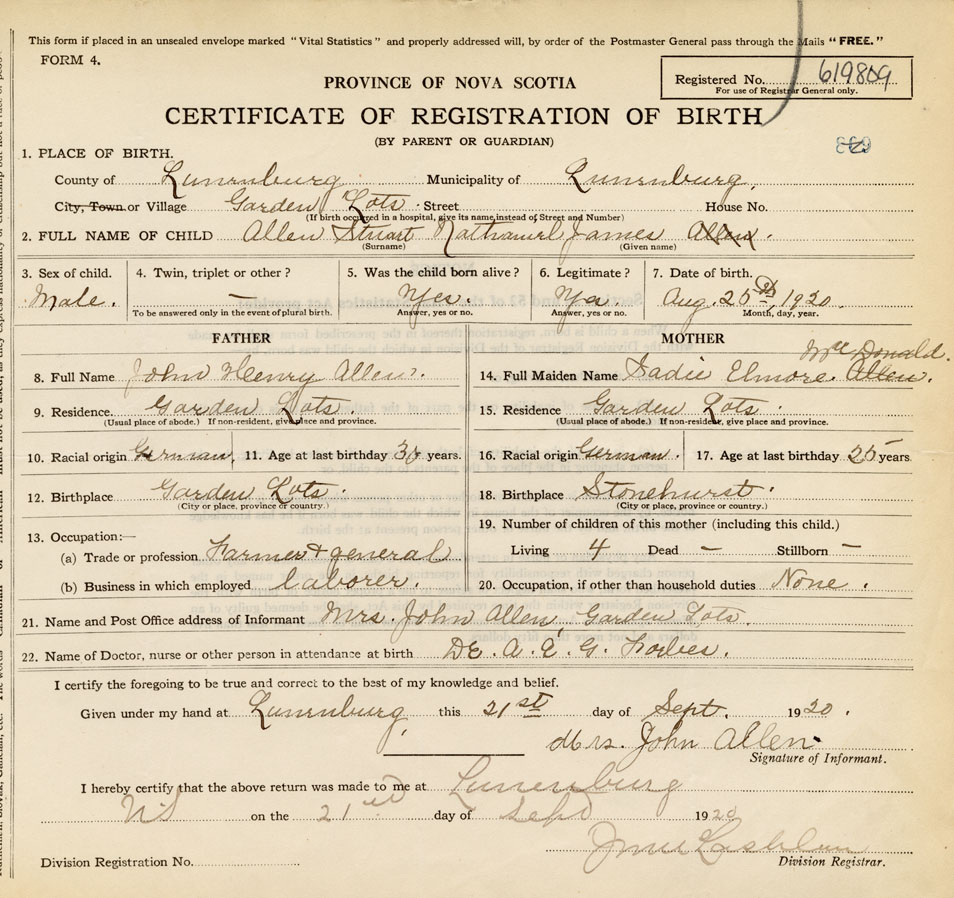 This form if placed in an unsealed envelope marked "Vital Statistics" and properly addressed will, by order of the Postmaster General pass through the Mails "FREE."
FORM 4.
Registered No. 619809
For use of Registrar General only.
PROVINCE OF NOVA SCOTIA
CERTIFICATE OF REGISTRATION OF BIRTH
(BY PARENT OR GUARDIAN)
1. PLACE OF BIRTH.
County of Lunenburg Municipality of Lunenburg.
City, Town or Village Garden Lots. Street House No.
(If birth occurred in a hospital, give its name instead of Street and Number)
2. FULL NAME OF CHILD Allen Stuart Nathaniel James Allen.
(Surname) (Given name)
3. Sex of child. 4. Twin, triplet or other? 5. Was the child born alive? 6. Legitimate? 7. Date of birth.
Male. — Yes. Yes. Aug. 25th, 1920
To be answered only in the event of plural birth. Answer, yes or no. Answer, yes or no. Month, day, year.
FATHER
8. Full Name John Henry Allen.
9. Residence. Garden Lots.
(Usual place of abode.) If non-resident, give place and province.
10. Racial origin German. 11. Age at last birthday 36 years.
12. Birthplace Garden Lots.
(City or place, province or country.)
13. Occupation:—
(a) Trade or profession Farmer & general
(b) Business in which employed laborer.
MOTHER
McDonald.
14. Full Maiden Name Sadie Elmore Allen.
15. Residence Garden Lots.
(Usual place of abode.) If non-resident, give place and province.
16. Racial origin German. 17. Age at last birthday 25 years.
18. Birthplace Stonehurst.
(City or place, province or country.)
19. Number of children of this mother (including this child.)
Living 4 Dead — Stillborn —
20. Occupation, if other than household duties None.
21. Name and Post Office address of Informant Mrs. John Allen, Garden Lots.
22. Name of Doctor, nurse or other person in attendance at birth Dr. A. E. G. Forbes.
I certify the foregoing to be true and correct to the best of my knowledge and belief.
Given under my hand at Lunenburg, this 21st day of Sept. 1920.
Mrs. John Allen.
Signature of Informant.
I hereby certify that the above return was made to me at Lunenburg
NS on the 21st day of Sept 1920
Division Registration No.
Division Registrar.